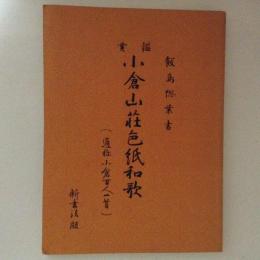 飯島惣葉書
鑑賞
小倉山荘色紙和歌
(通称小倉百人一首)
新書法版